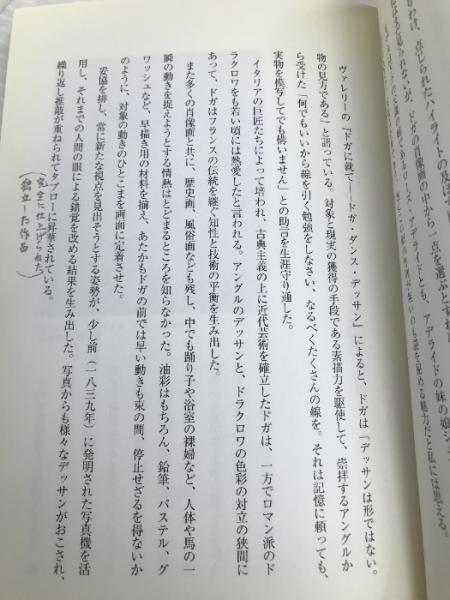 われ、点じられたハイライトの及ぼ
に思える。
ヴァレリーの『ドガに就て――ドガ・ダンス・デッサン』によると、ドガは「デッサンは形ではない。
物の見方である」と語っている。対象と現実の獲得の手段である素描力を駆使して、崇拝するアングルか
ら受けた「何でもいいから線を引く勉強をしなさい、なるべくたくさんの線を。それは記憶に頼っても、
実物を模写してでも構いません」との助言を生涯守り通した。
イタリアの巨匠たちによって培われ、古典主義の上に近代芸術を確立したドガは、一方でロマン派のド
ラクロワをも若い頃には熱愛したと言われる。アングルのデッサンと、ドラクロワの色彩の対立の狭間に
あって、ドガはフランスの伝統を継ぐ知性と技術の平衡を生み出した。
また多くの肖像画と共に、歴史画、風俗画なども残し、中でも踊り子や浴室の裸婦など、人体や馬の一
瞬の動きを捉えようとする情熱はとどまるところを知らなかった。油彩はもちろん、鉛筆、パステル、グ
ワッシュなど、早描き用の材料を揃え、あたかもドガの前では早い動きも束の間、停止せざるを得ないか
のように、対象の動きのひとこまを画面に定着させた。
妥協を排し、常に新たな視点を見出そうとする姿勢が、少し前（一八三九年）に発明された写真機を活
用し、それまでの人間の眼による錯覚を改める結果を生み出した。写真からも様々なデッサンがおこされ、
繰り返し推敲が重ねられてタブローに昇華されている。
（完全に仕上げられた
独立した作品）